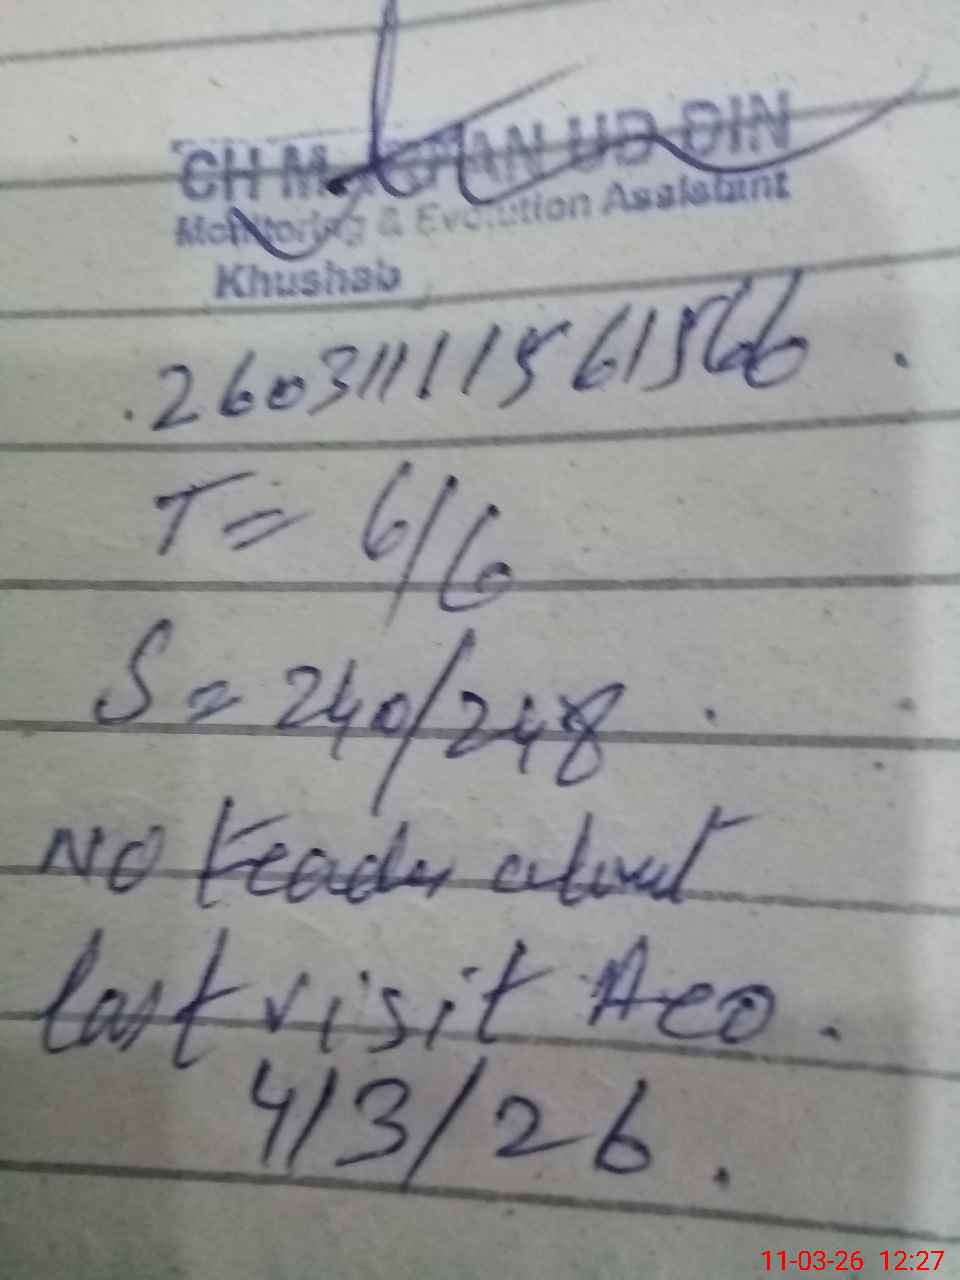 CH M UD DIN
Monitoring & Evolution Assistant
Khushab
T = 6/6
S = 240/248
No teacher absent
last visit Aeo.
4/3/26.
11-03-26 12:27